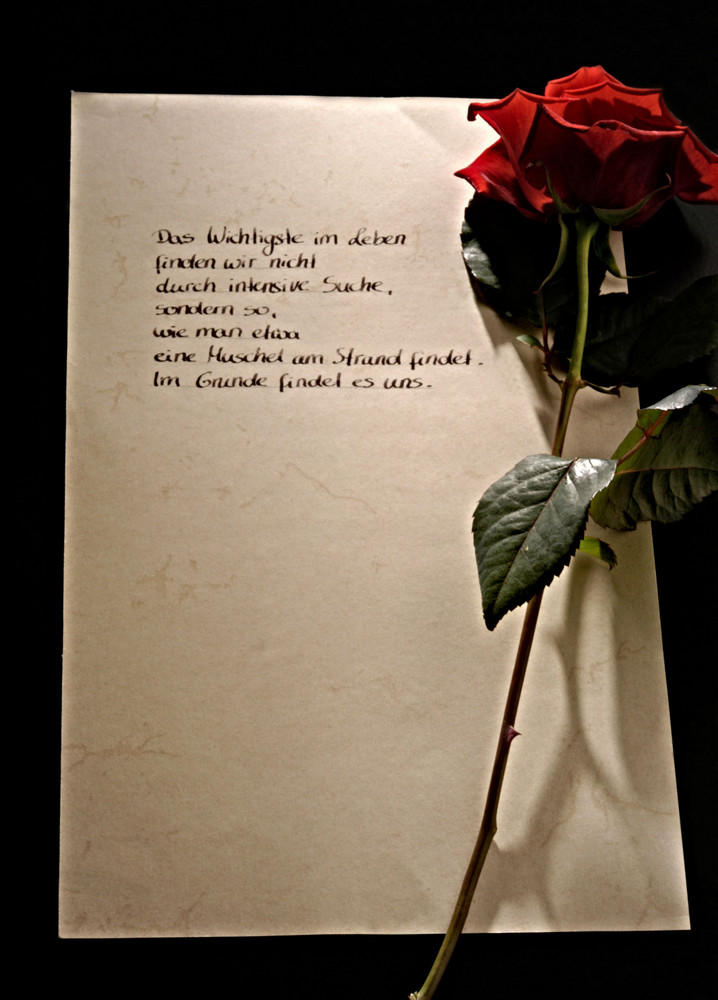 Das Wichtigste im Leben
finden wir nicht
durch intensive Suche,
sondern so,
wie man etwa
eine Muschel am Strand findet.
Im Grunde findet es uns.